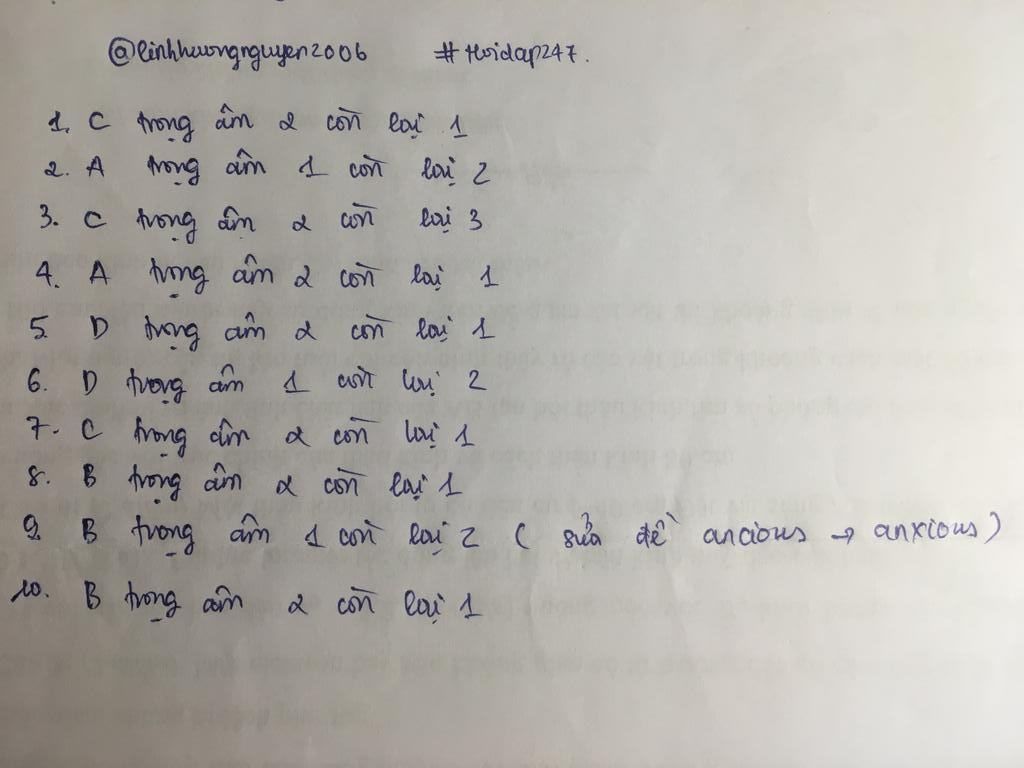 @linhhuongnguyen2006 #Hoidap247.
1. C trọng âm 2 còn lại 1
2. A trọng âm 1 còn lại 2
3. C trọng âm 2 còn lại 3
4. A trọng âm 2 còn lại 1
5. D trọng âm 2 còn lại 1
6. D trọng âm 1 còn lại 2
7. C trọng âm 2 còn lại 1
8. B trọng âm 2 còn lại 1
9. B trọng âm 1 còn lại 2 ( sửa đề ancious → anxious )
10. B trọng âm 2 còn lại 1